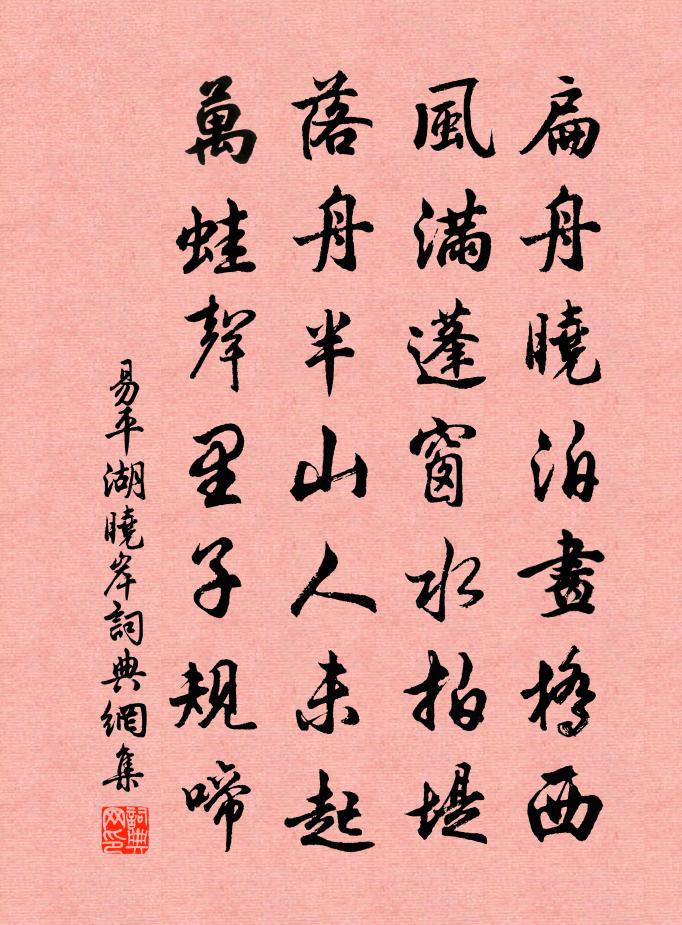 扁舟曉泊畫橋西
風滿蓬窗水拍堤
落舟半山人未起
萬蛙聲里子規啼
易平湖曉岸詞典網集
詞典网印